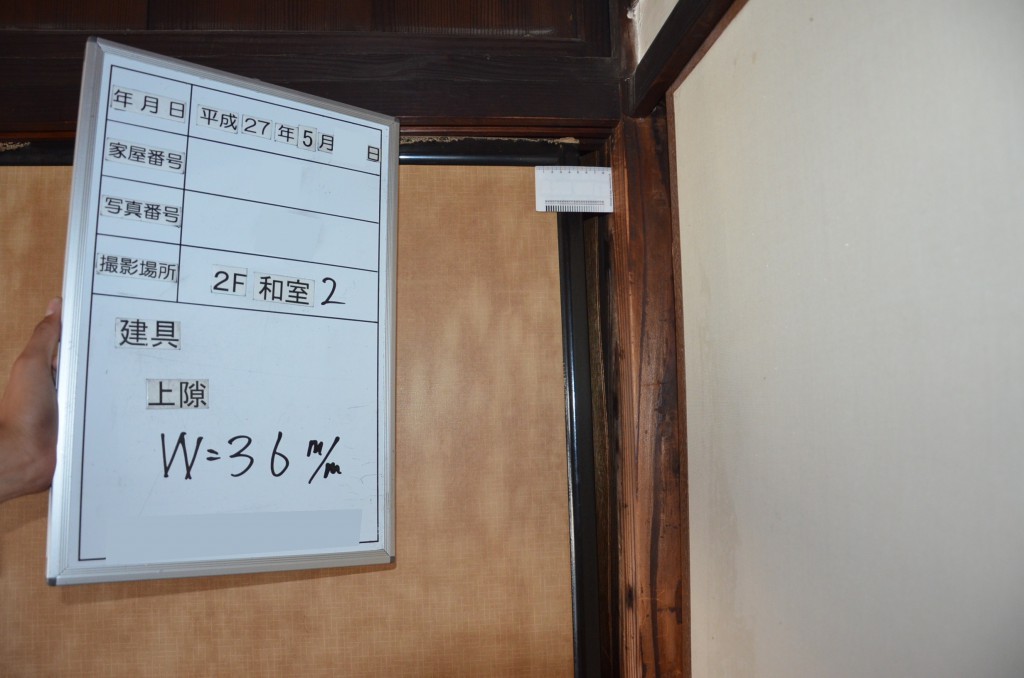 年月日 平成27年5月 日
家屋番号
写真番号
撮影場所 2F 和室 2
建具
上隙
W=36 m/m